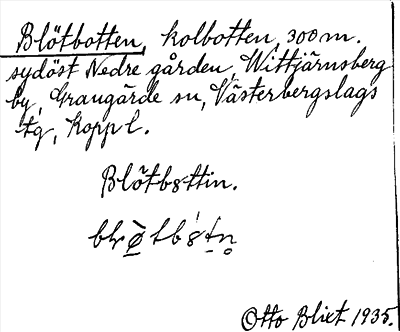 Blötbotten, kolbotten, 300 m.
sydöst Nedre gården, Wittjärnsberg
by, Grangärde sn, Västerbergslags
tg, Kopp l.
Blötbȣttin.
Otto Blixt 1935.